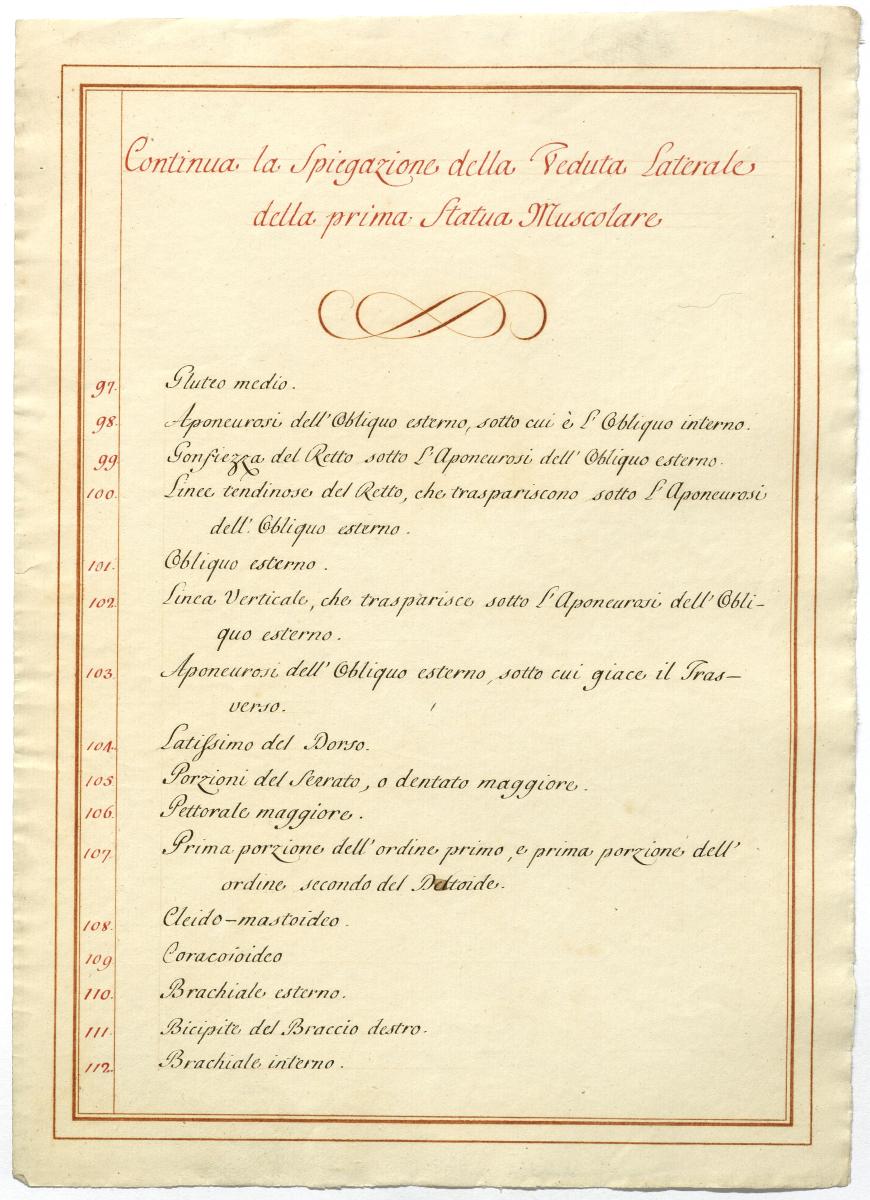 Continua la Spiegazione della Veduta Laterale
della prima Statua Muscolare
97. Gluteo medio.
98. Aponeurosi dell'Obliquo esterno, sotto cui è l'Obliquo interno.
99 Gonfiezza del Retto sotto l'Aponeurosi dell'Obliquo esterno.
100. Linee tendinose del Retto, che traspariscono sotto l'Aponeurosi
dell'Obliquo esterno.
101. Obliquo esterno.
102. Linea Verticale, che trasparisce sotto l'Aponeurosi dell'Obli-
quo esterno.
103. Aponeurosi dell'Obliquo esterno, sotto cui giace il Tras-
verso.
104. Latissimo del Dorso.
105. Porzioni del Serrato, o dentato maggiore.
106. Pettorale maggiore.
107. Prima porzione dell'ordine primo, e prima porzione dell'
ordine secondo del Deltoide.
108. Cleido-mastoideo.
109. Coracoioideo
110. Brachiale esterno.
111. Bicipite del Braccio destro.
112. Brachiale interno.